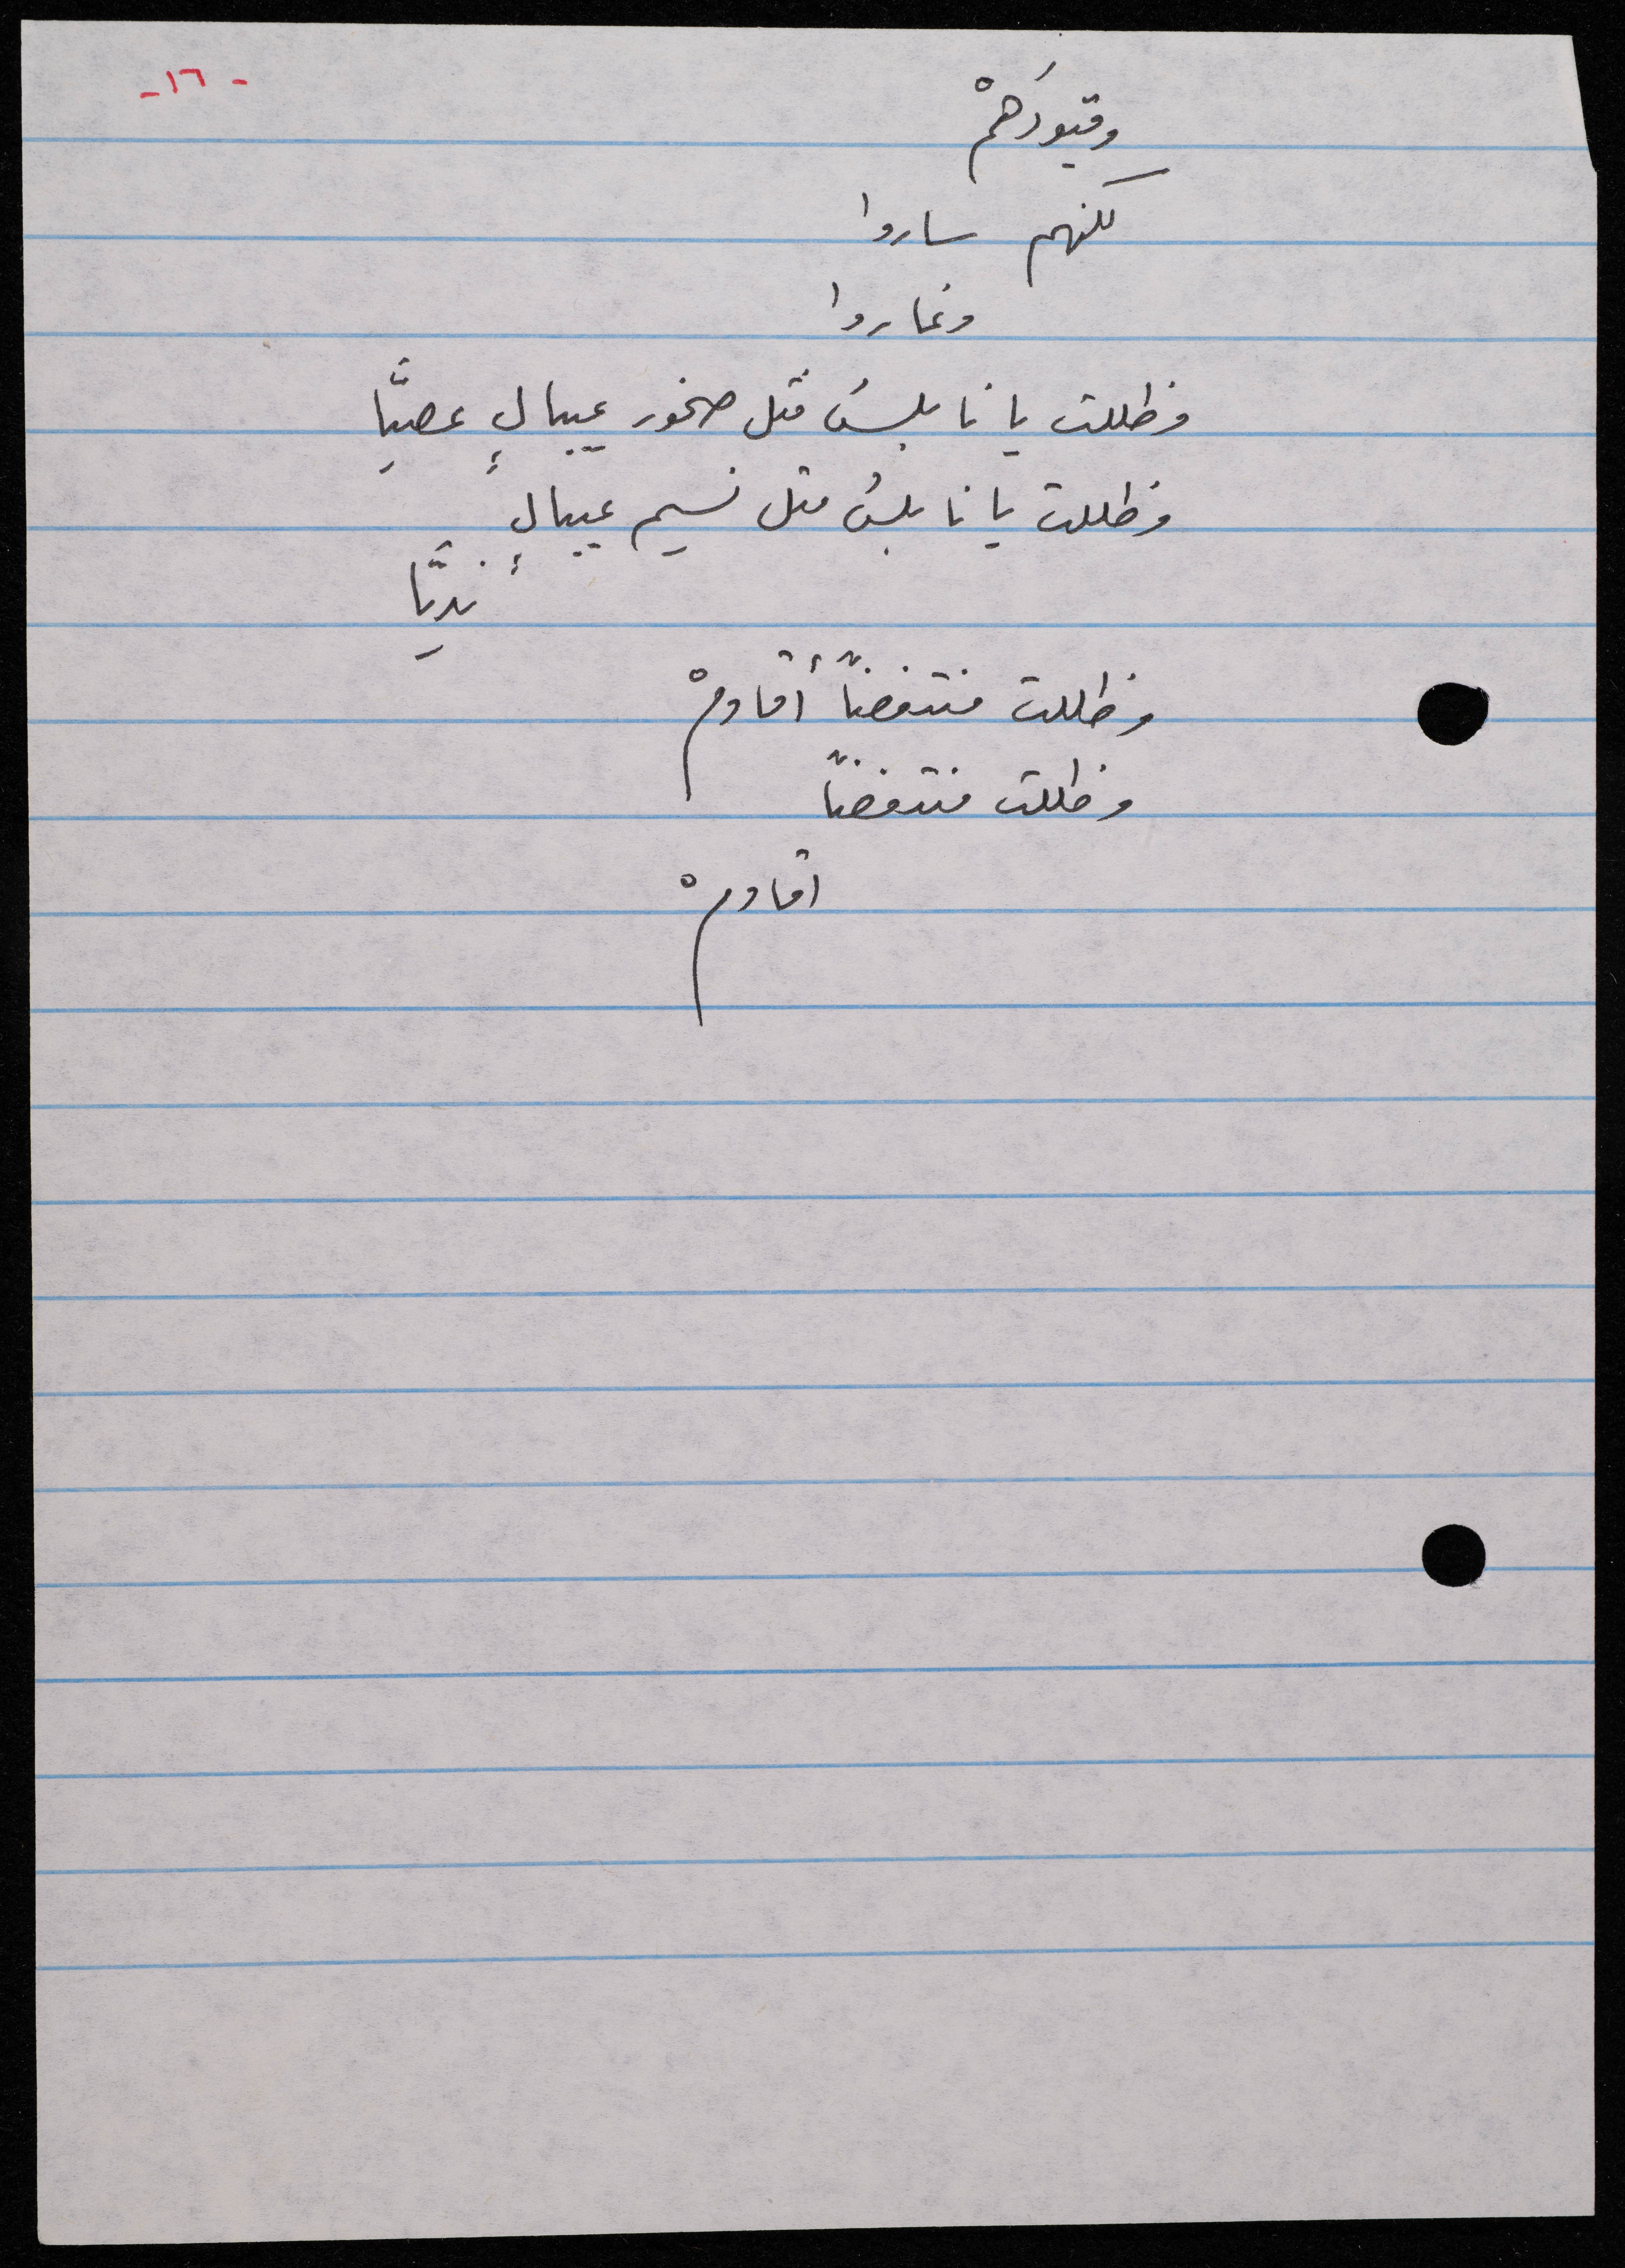 - ١٦ -
وقيودَهمْ
لكنهم ساروا
وغاروا
وظللت يا نابلسُ مثل صخور عيبالٍ عصيِّا
وظللت يا نابلسُ مثل نسيم عيبالٍ
نديِّا
وظللت منتفضاً أقاومْ
وظللت منتفضاً
اقاومْ